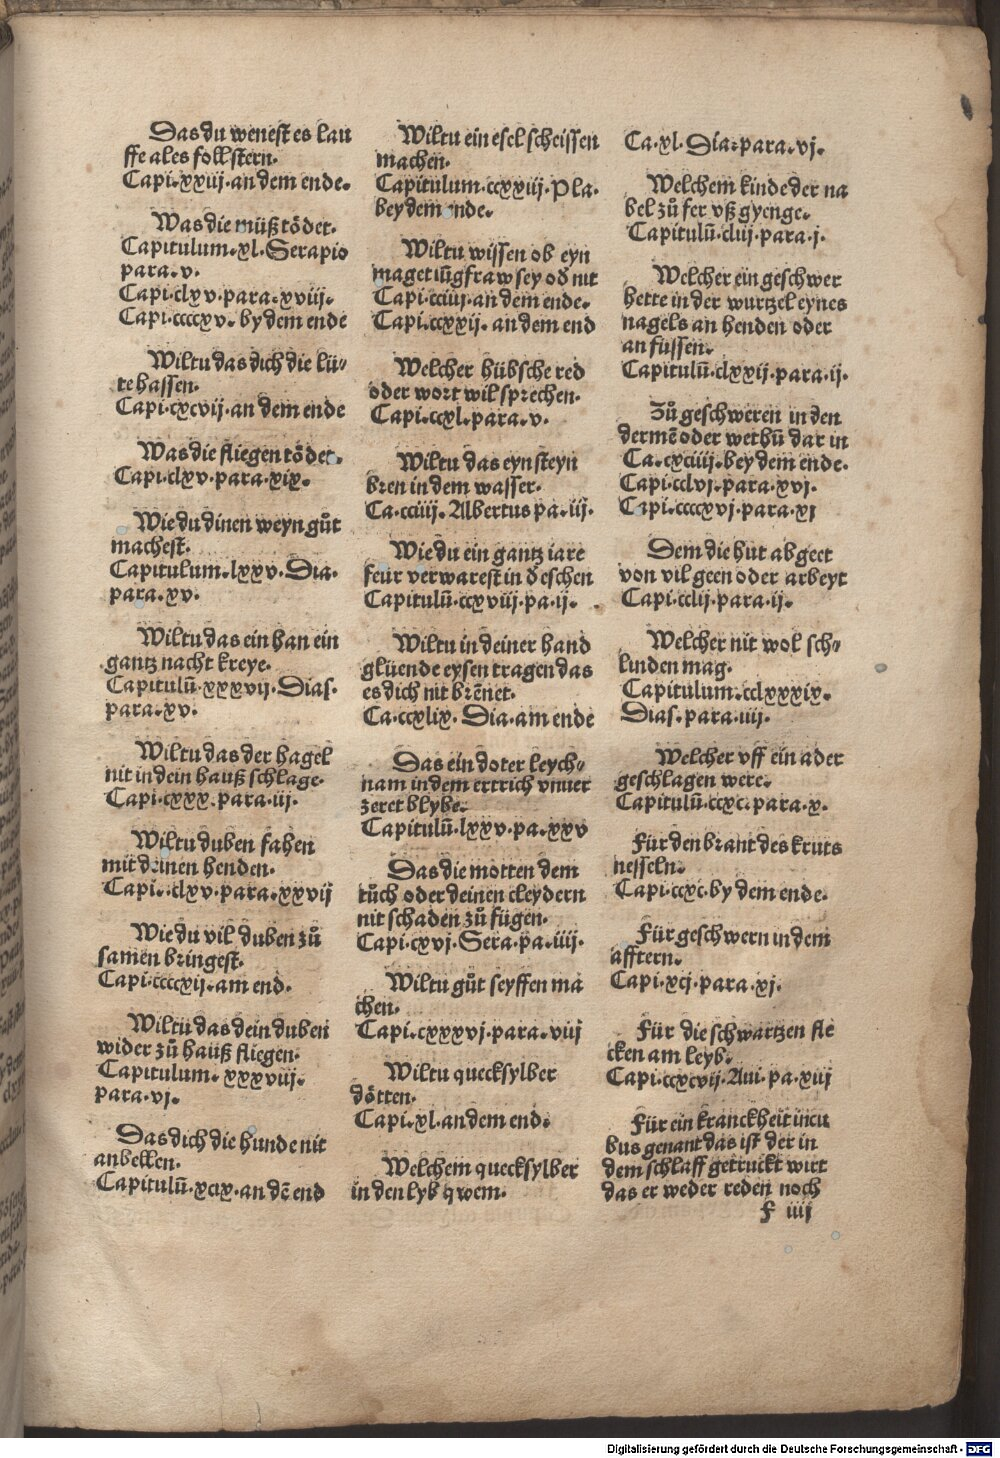 Das du wenest es lau
ffe ales foll stern.
Capi.xxiij.an dem ende.
Was die müß tödet.
Capitulum.xl.Serapio
para.v.
Capi.clxv.para.xviij.
Capi.ccccxv.by dem ende
Wiltu das dich die lü⸗
te hassen.
Capi.cxcvij.an dem ende
Was die fliegen tödet.
Capi.clxv.para.xix.
Wie du dinen weyn gůt
machest.
Capitulum.lxxv.Dia.
para.xv.
Wiltu das ein han ein
gantz nacht kreye.
Capitulū.xxxvij.Dias.
para.xv.
Wiltu das der hagel
nit in dein hauß schlage.
Capi.cxxx.para.iij.
Wiltu duben fahen
mit deinen henden.
Capi.clxv.para.xxvij
Wie du vil duben zů
samen bringest.
Capi.ccccxij.am end.
Wiltu das dein duben
wider zů hauß fliegen.
Capitulum.xxxviij.
para.vj.
Das dich die hunde nit
anbellen.
Capitulū.xcix.an dē end
Wiltu ein esel scheissen
machen.
Capitulum.ccxxiij.Pla.
bey dem ende.
Wiltu wissen ob eyn
maget iūgfraw sey od nit
Capi.cciiij.an dem ende.
Capi.ccxxij.an dem end
Welcher hübsche red
oder wort wil sprechen.
Capi.ccxl.para.v.
Wiltu das eyn steyn
bren in dem wasser.
Ca.cciiij.Albertus pa.iij.
Wie du ein gantz iare
feür verwarest in d eschen
Capitulū.ccxviij.pa.ij.
Wiltu in deiner hand
glüende eysen tragen das
es dich nit brēnet.
Ca.ccxlix.Dia.am ende
Das ein doter leych⸗
nam in dem ertrich vnuer
zeret blybe.
Capitulū.lxxv.pa.xxv
Das die motten dem
tůch oder deinen cleydern
nit schaden zů fügen.
Capi.cxvj.Sera.pa.iiij.
Wiltu gůt seyffen ma
chen.
Capi.cxxxvj.para.viij
Wiltu quecksylber
dötten.
Capi.xl.an dem end.
Welchem quecksylber
in den lyb qwem.
Ca.xl.Dia.para.vj.
Welchem kinde der na
bel zů fer vß gyenge.
Capitulū.cliij.para.j.
Welcher ein geschwer
hette in der wurtzel eynes
nagels an henden oder
an füssen.
Capitulū.clxxij.para.ij.
Zů geschweren in den
dermē oder wethū dar in
Ca.cxciiij.bey dem ende.
Capi.cclvj.para.xvj.
Capi.ccccxvj.para.xj
Dem die hut ab geet
von vil geen oder arbeyt
Capi.cclij.para.ij.
Welcher nit wol sch⸗
linden mag.
Capitulum.cclxxxix.
Dias.para.iiij.
Welcher vff ein ader
geschlagen were.
Capitulū.ccxc.para.x.
Für den brant des kruts
nesseln.
Capi.ccxc.by dem ende.
Für geschwern in dem
afftern.
Capi.xcj.para.xj.
Für die schwartzen fle
cken am leyb.
Capi.ccxcvij.Aui.pa.xiij
Für ein kranckheit incu
bus genant das ist der in
dem schlaff getruckt wirt
das er weder reden noch
f iiij
Digitalisierung gefördert durch die Deutsche Forschungsgemeinschaft - DFG